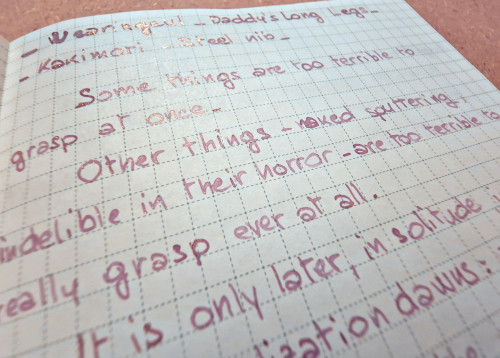 - Wearingeul - Daddy's Long Legs -
- Kakimori - Steel nib -
Some things are too terrible to
grasp at once -
Other things - naked, sputtering,
indelible in their horror - are too terrible to
really grasp ever at all.
It is only later, in solitude
dawns: